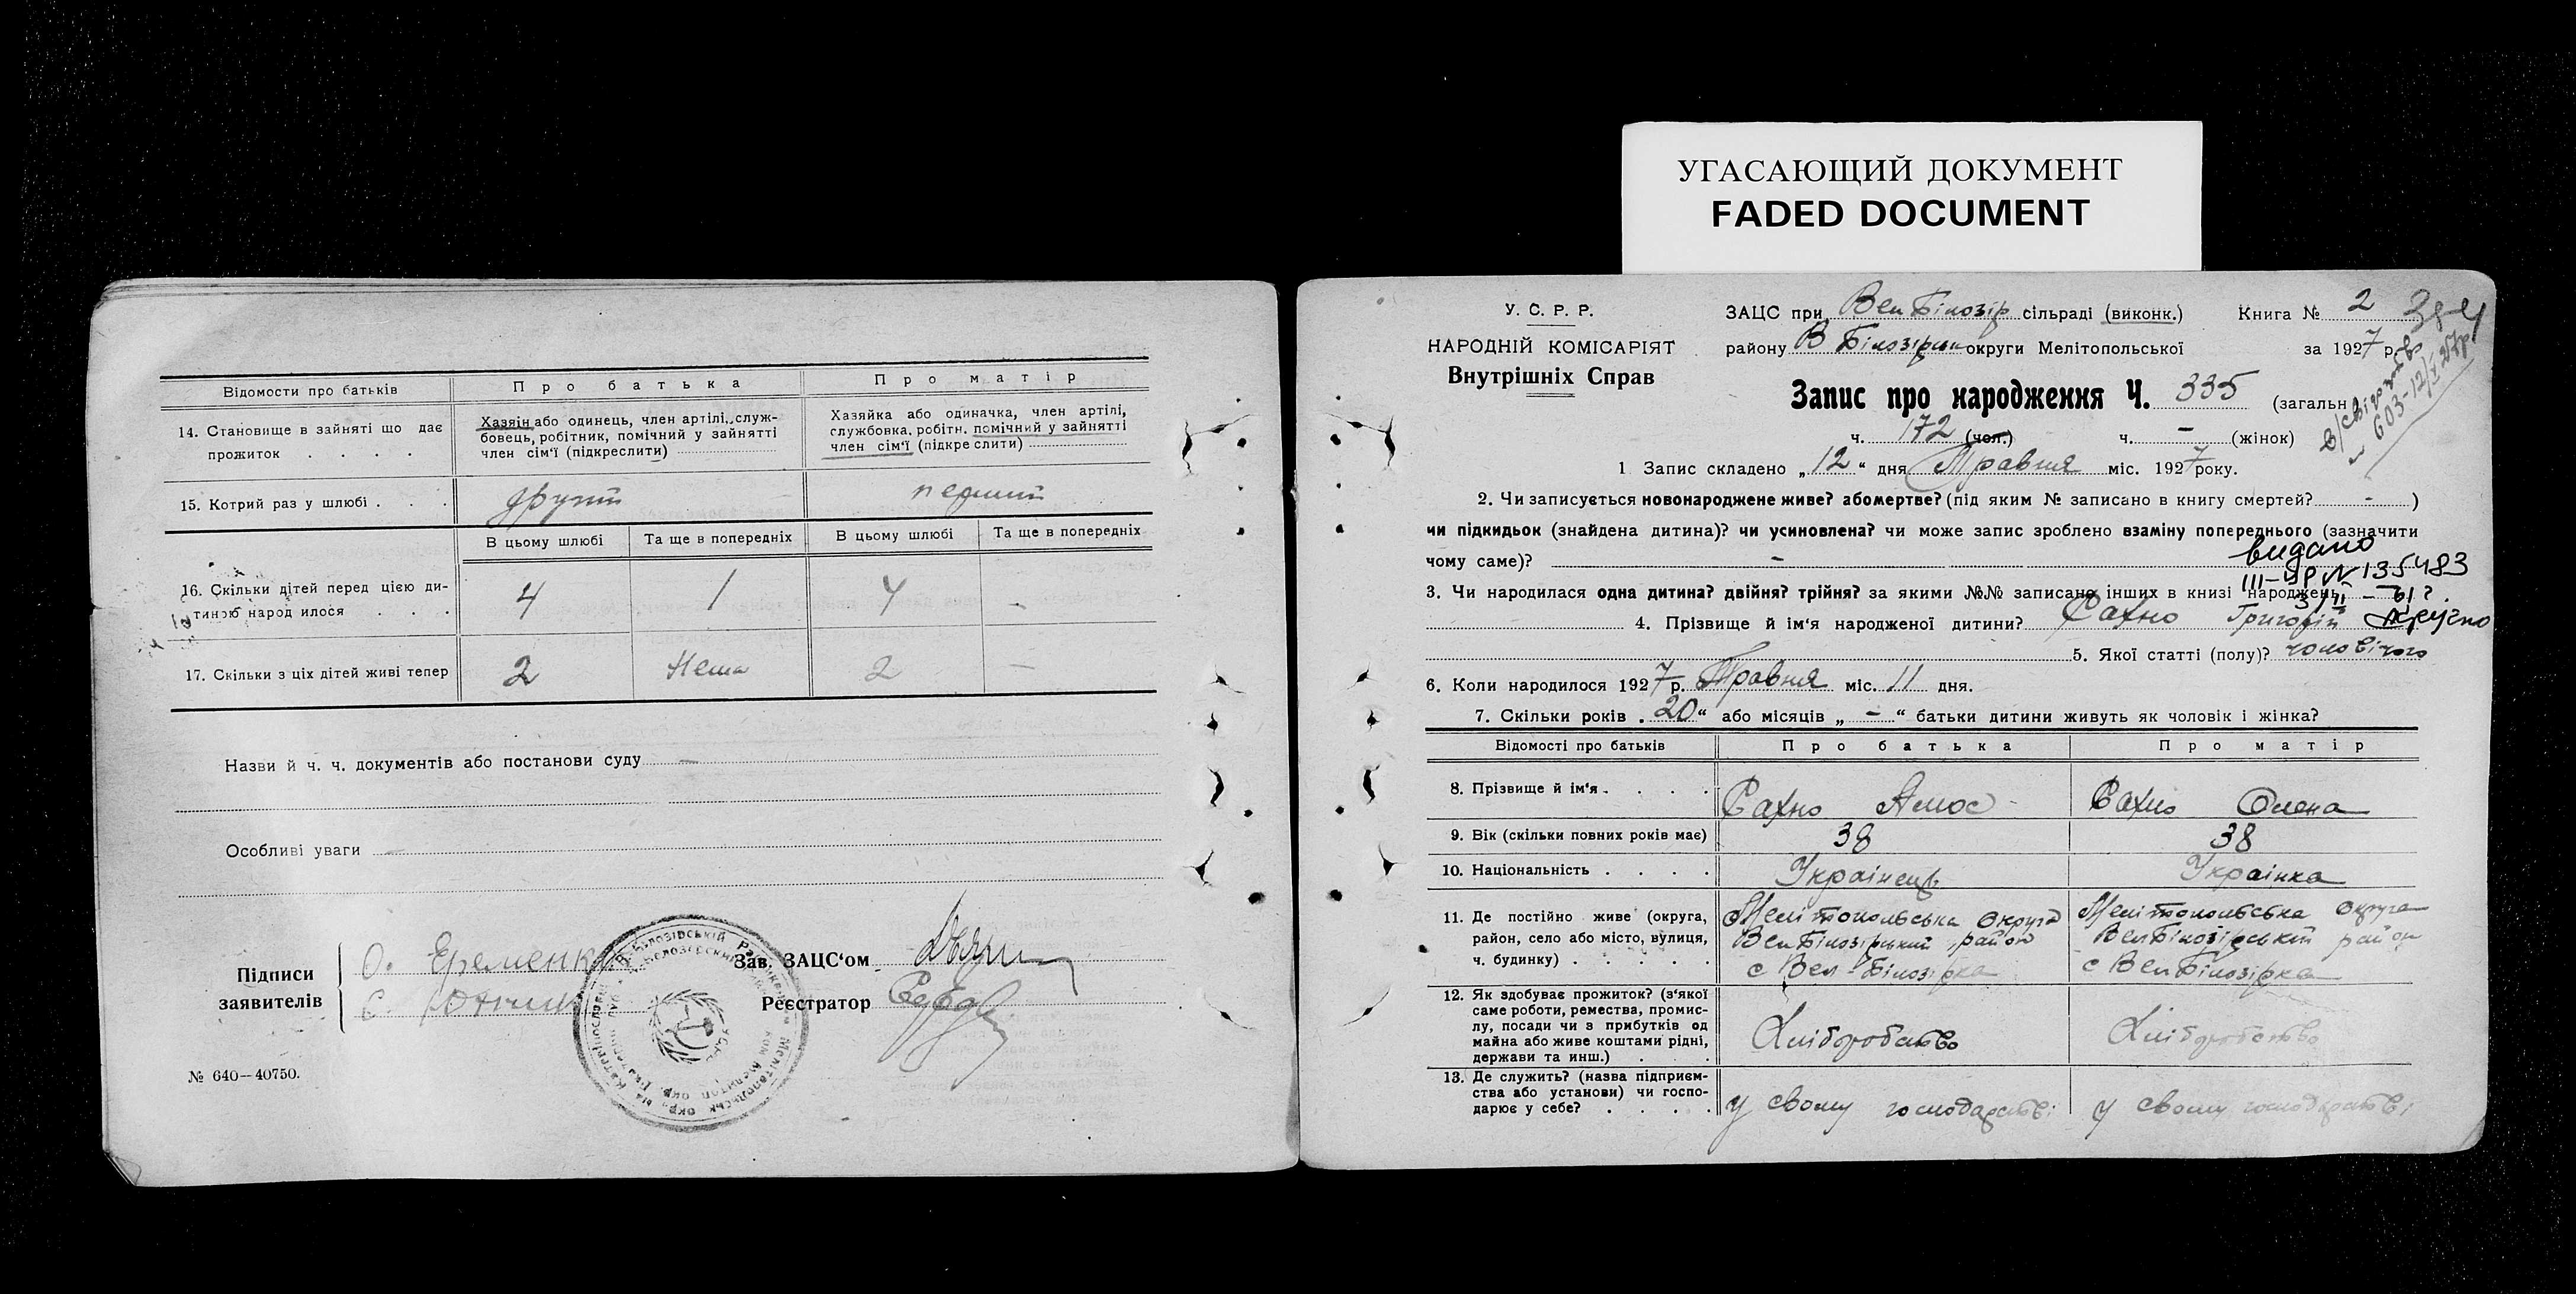 УГАСАЮЩИЙ ДОКУМЕНТ
FADED DOCUMENT
Відомости про батьків
Про батька
Про матір
14. Становище в зайняті що дає прожиток . . . .
Хазяін або одинець, член артілі, служ-
бовець, робітник, помічний у зайнятті
член сім'ї (підкреслити)
Хазяйка або одиначка, член артілі,
службовка, робітн. помічний у зайнятті
член сім'ї (підкреслити)
15. Котрий раз у шлюбі . . .
другий
перший
В цьому шлюбі
Та ще в попередніх
В цьому шлюбі
Та ще в попередніх
16. Скільки дітей перед цією ди-
тиною народилося . . .
4
1
4
-
17. Скільки з ціх дітей живі тепер
2
Нема
2
—
Назви й ч. ч. документів або постанови суду —
Особливі уваги
Підписи
заявителів
О. Еременко
Зав. ЗАЦС'ом
Реєстратор
№ 640—40750.
У. С. Р. Р.
НАРОДНІЙ КОМІСАРІЯТ
Внутрішніх Справ
ЗАЦС при Вел Білозір сільраді (виконк.)
Книга № 2
району В Білозірськ округи Мелітопольської
за 1927 р.
603-12/X 27р
Запис про народження Ч. 335 (загальн
ч. 172 (чол.) ч. — (жінок)
1 Запис складено „12" дня Травня міс. 1927 року.
2. Чи записується новонароджене живе? або мертве? (під яким № записано в книгу смертей? - )
чи підкидьок (знайдена дитина)? чи усиновлена? чи може запис зроблено взаміну попереднього (зазначити
чому саме)? -
видано
III-УР № 135483
3. Чи народилася одна дитина? двійня? трійня? за якими №№ записано інших в книзі народжень - ?
4. Прізвище й ім'я народженої дитини? Сахно Григорій
5. Якої статті (полу)? чоловічого
6. Коли народилося 1927 р. Травня міс. 11 дня.
7. Скільки років „20" або місяців „-" батьки дитини живуть як чоловік і жінка?
Відомості про батьків
Про батька
Про матір
8. Прізвище й ім'я . . . .
Сахно Амос
Сахно Олена
9. Вік (скільки повних років має)
38
38
10. Національність . . . .
Українець
Українка
11. Де постійно живе (округа,
район, село або місто, вулиця,
ч. будинку) . . . . .
Мелітопольська округа
Вел Білозірський район
с Вел-Білозірка
Мелітопольська округа
Вел Білозірський район
с Вел Білозірка
12. Як здобуває прожиток? (з'якої
саме роботи, ремества, промис-
лу, посади чи з прибутків од
майна або живе коштами рідні,
держави та инш.) . . .
Хліборобство
Хліборобство
13. Де служить? (назва підприєм-
ства або установи) чи госпо-
дарює у себе? . . . .
у свому господарстві
у свому господарстві